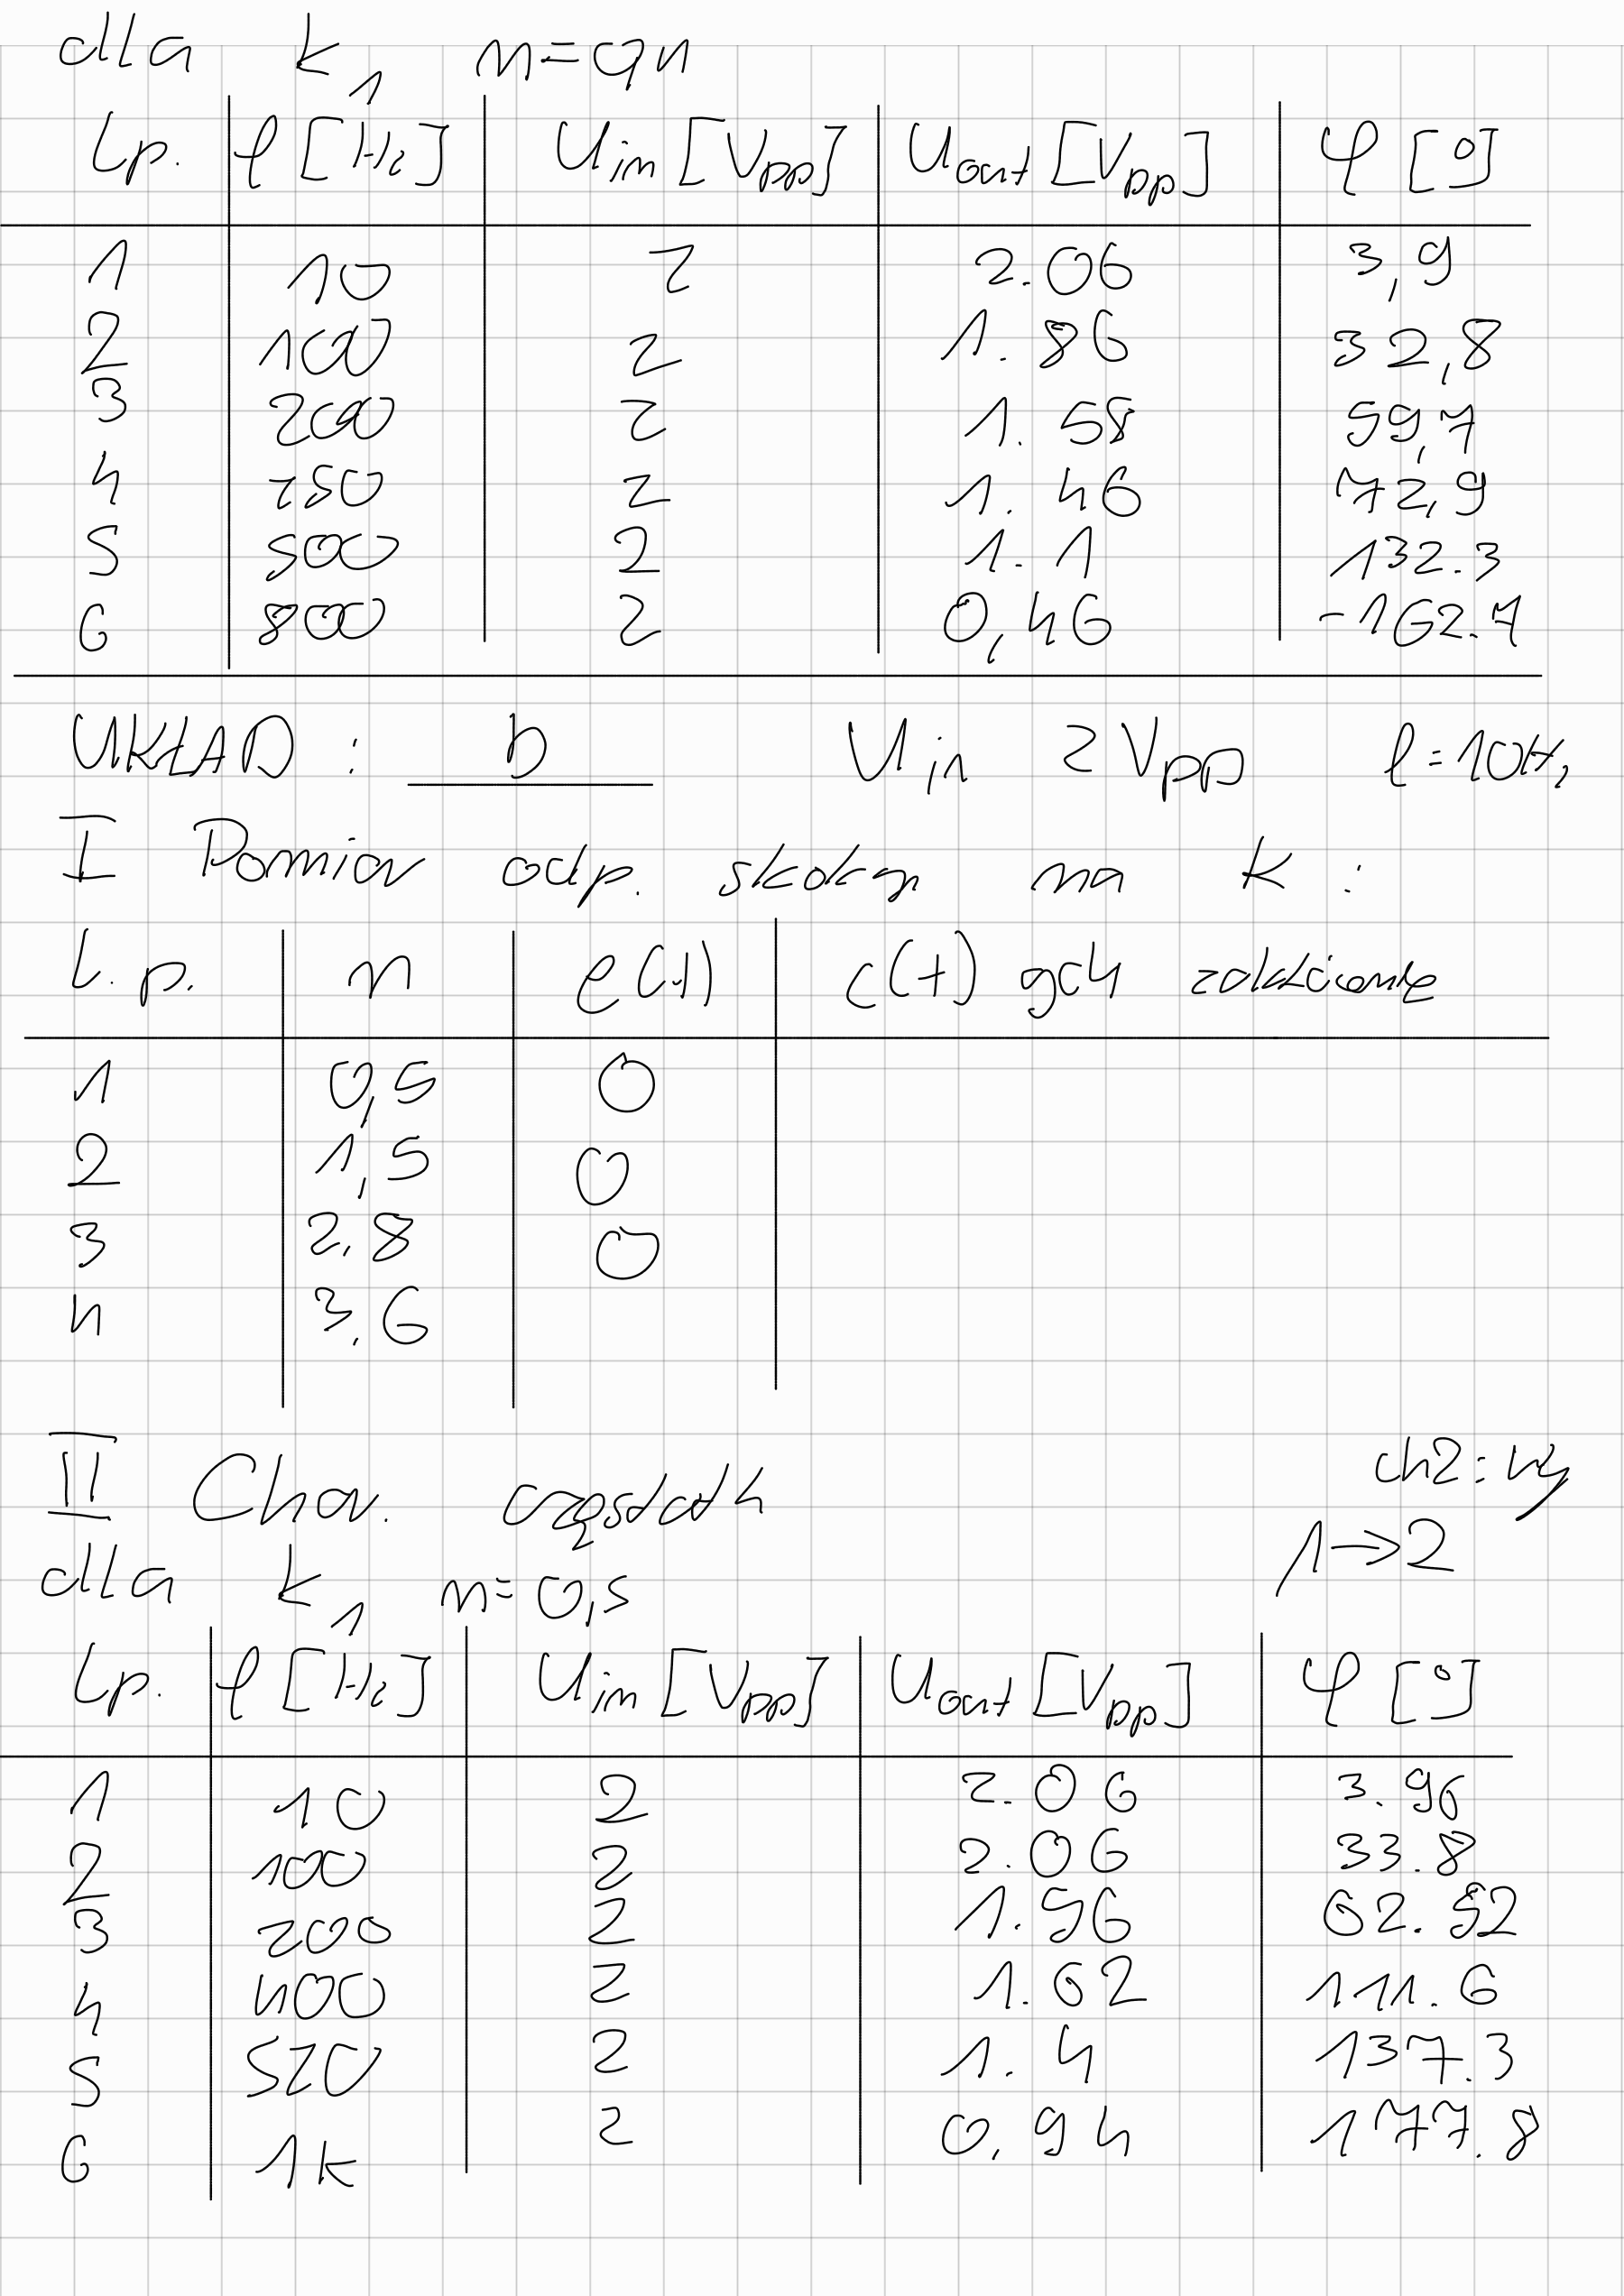 dla k1 n=0,4
Lp. f [Hz] Uin [Vpp] Uout [Vpp] φ [°]
1 10 2 2.06 3,9
2 100 2 1.86 32,8
3 200 2 1.58 59,7
4 250 2 1.46 72,9
5 500 2 1.1 132.3
6 800 2 0,46
UKŁAD : b Uin 2Vpp f=10Hz
I Pomiar odp. skokowy na k :
L.p. n e(t) c(t) gdy zakłócenie
1 0,5 0
2 1,5 0
3 2.8 0
4 3.6
II Char. częstotl. ch2: wy
1→2
dla k1 n=0,5
Lp. f [Hz] Uin [Vpp] Uout [Vpp] φ [°]
1 10 2 2.06 3.96
2 100 2 2.06 33.8
3 200 2 1.96 62.52
4 400 2 1.62 111.6
5 520 2 1.4 137.3
6 1k 2 0.94 177.8